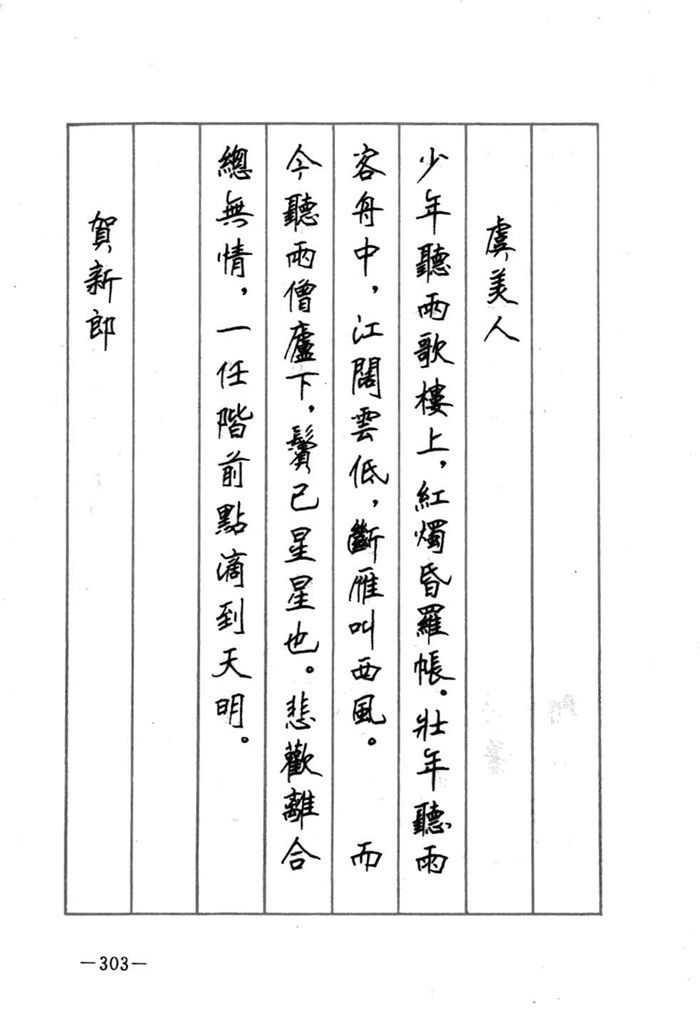 虞美人
少年聽雨歌樓上，紅燭昏羅帳。壯年聽雨
客舟中，江闊雲低，斷雁叫西風。　而
今聽雨僧廬下，鬢已星星也。悲歡離合
總無情，一任階前點滴到天明。
賀新郎
—303—